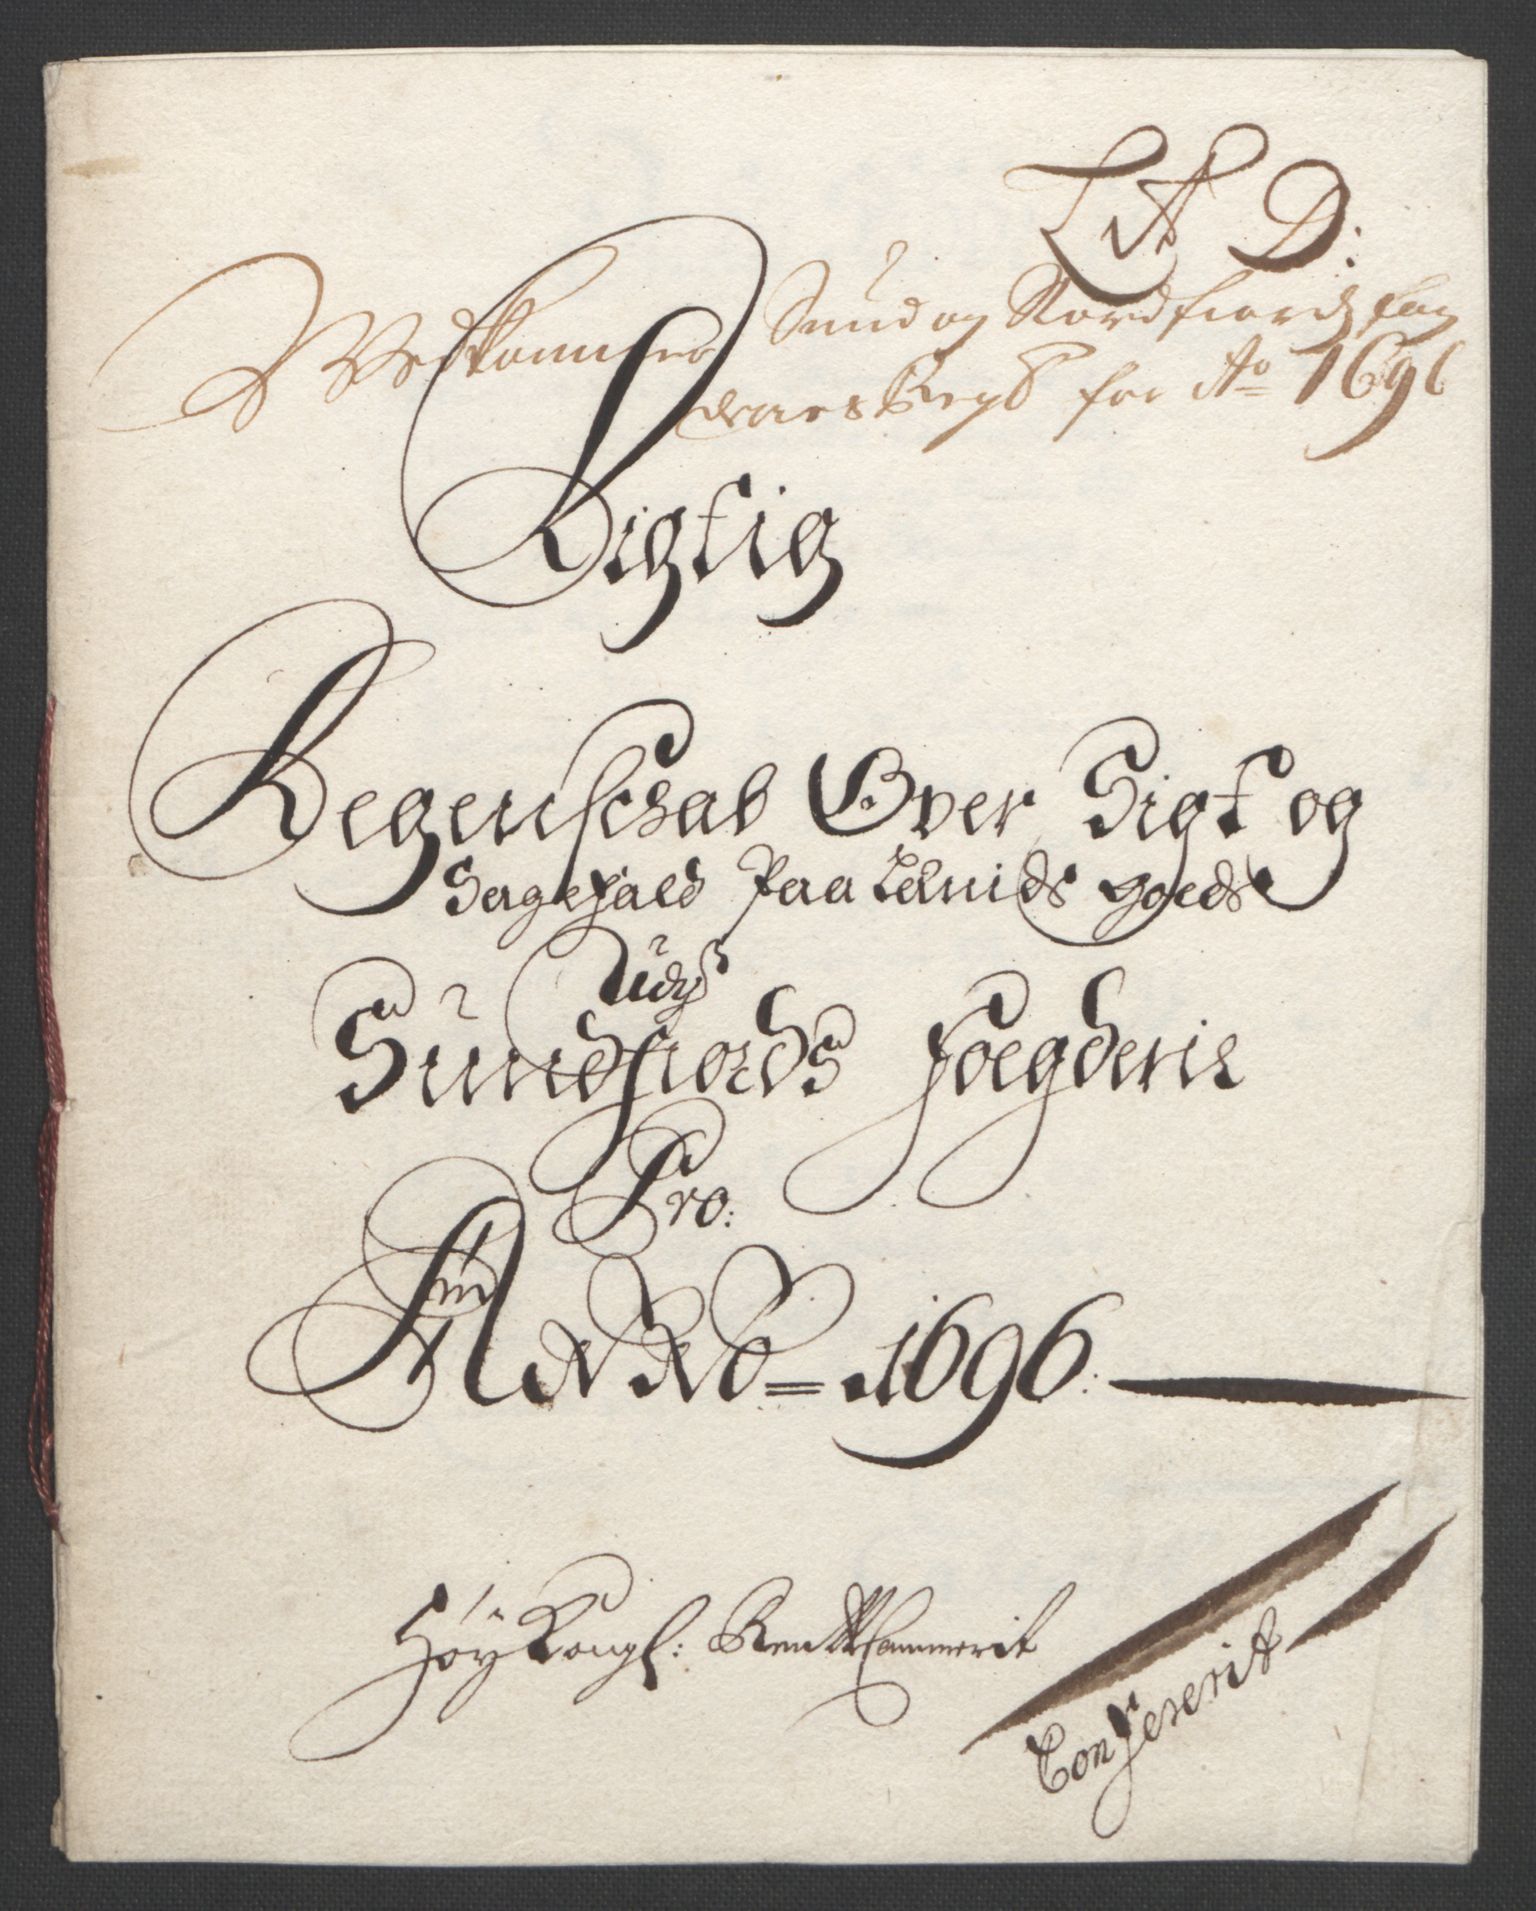 Lit D:
Vedkommer Sund og Nordfiords fog
deries Regs for Ao 1696
Rigtig
Regenschab Over Sigt og
Sagefald Paa Leduids goeds
Udj
Sündfiords foegderie
Pro:
ANNO = 1696.
Höy Kongl: Rendte Cammerit
Confererit